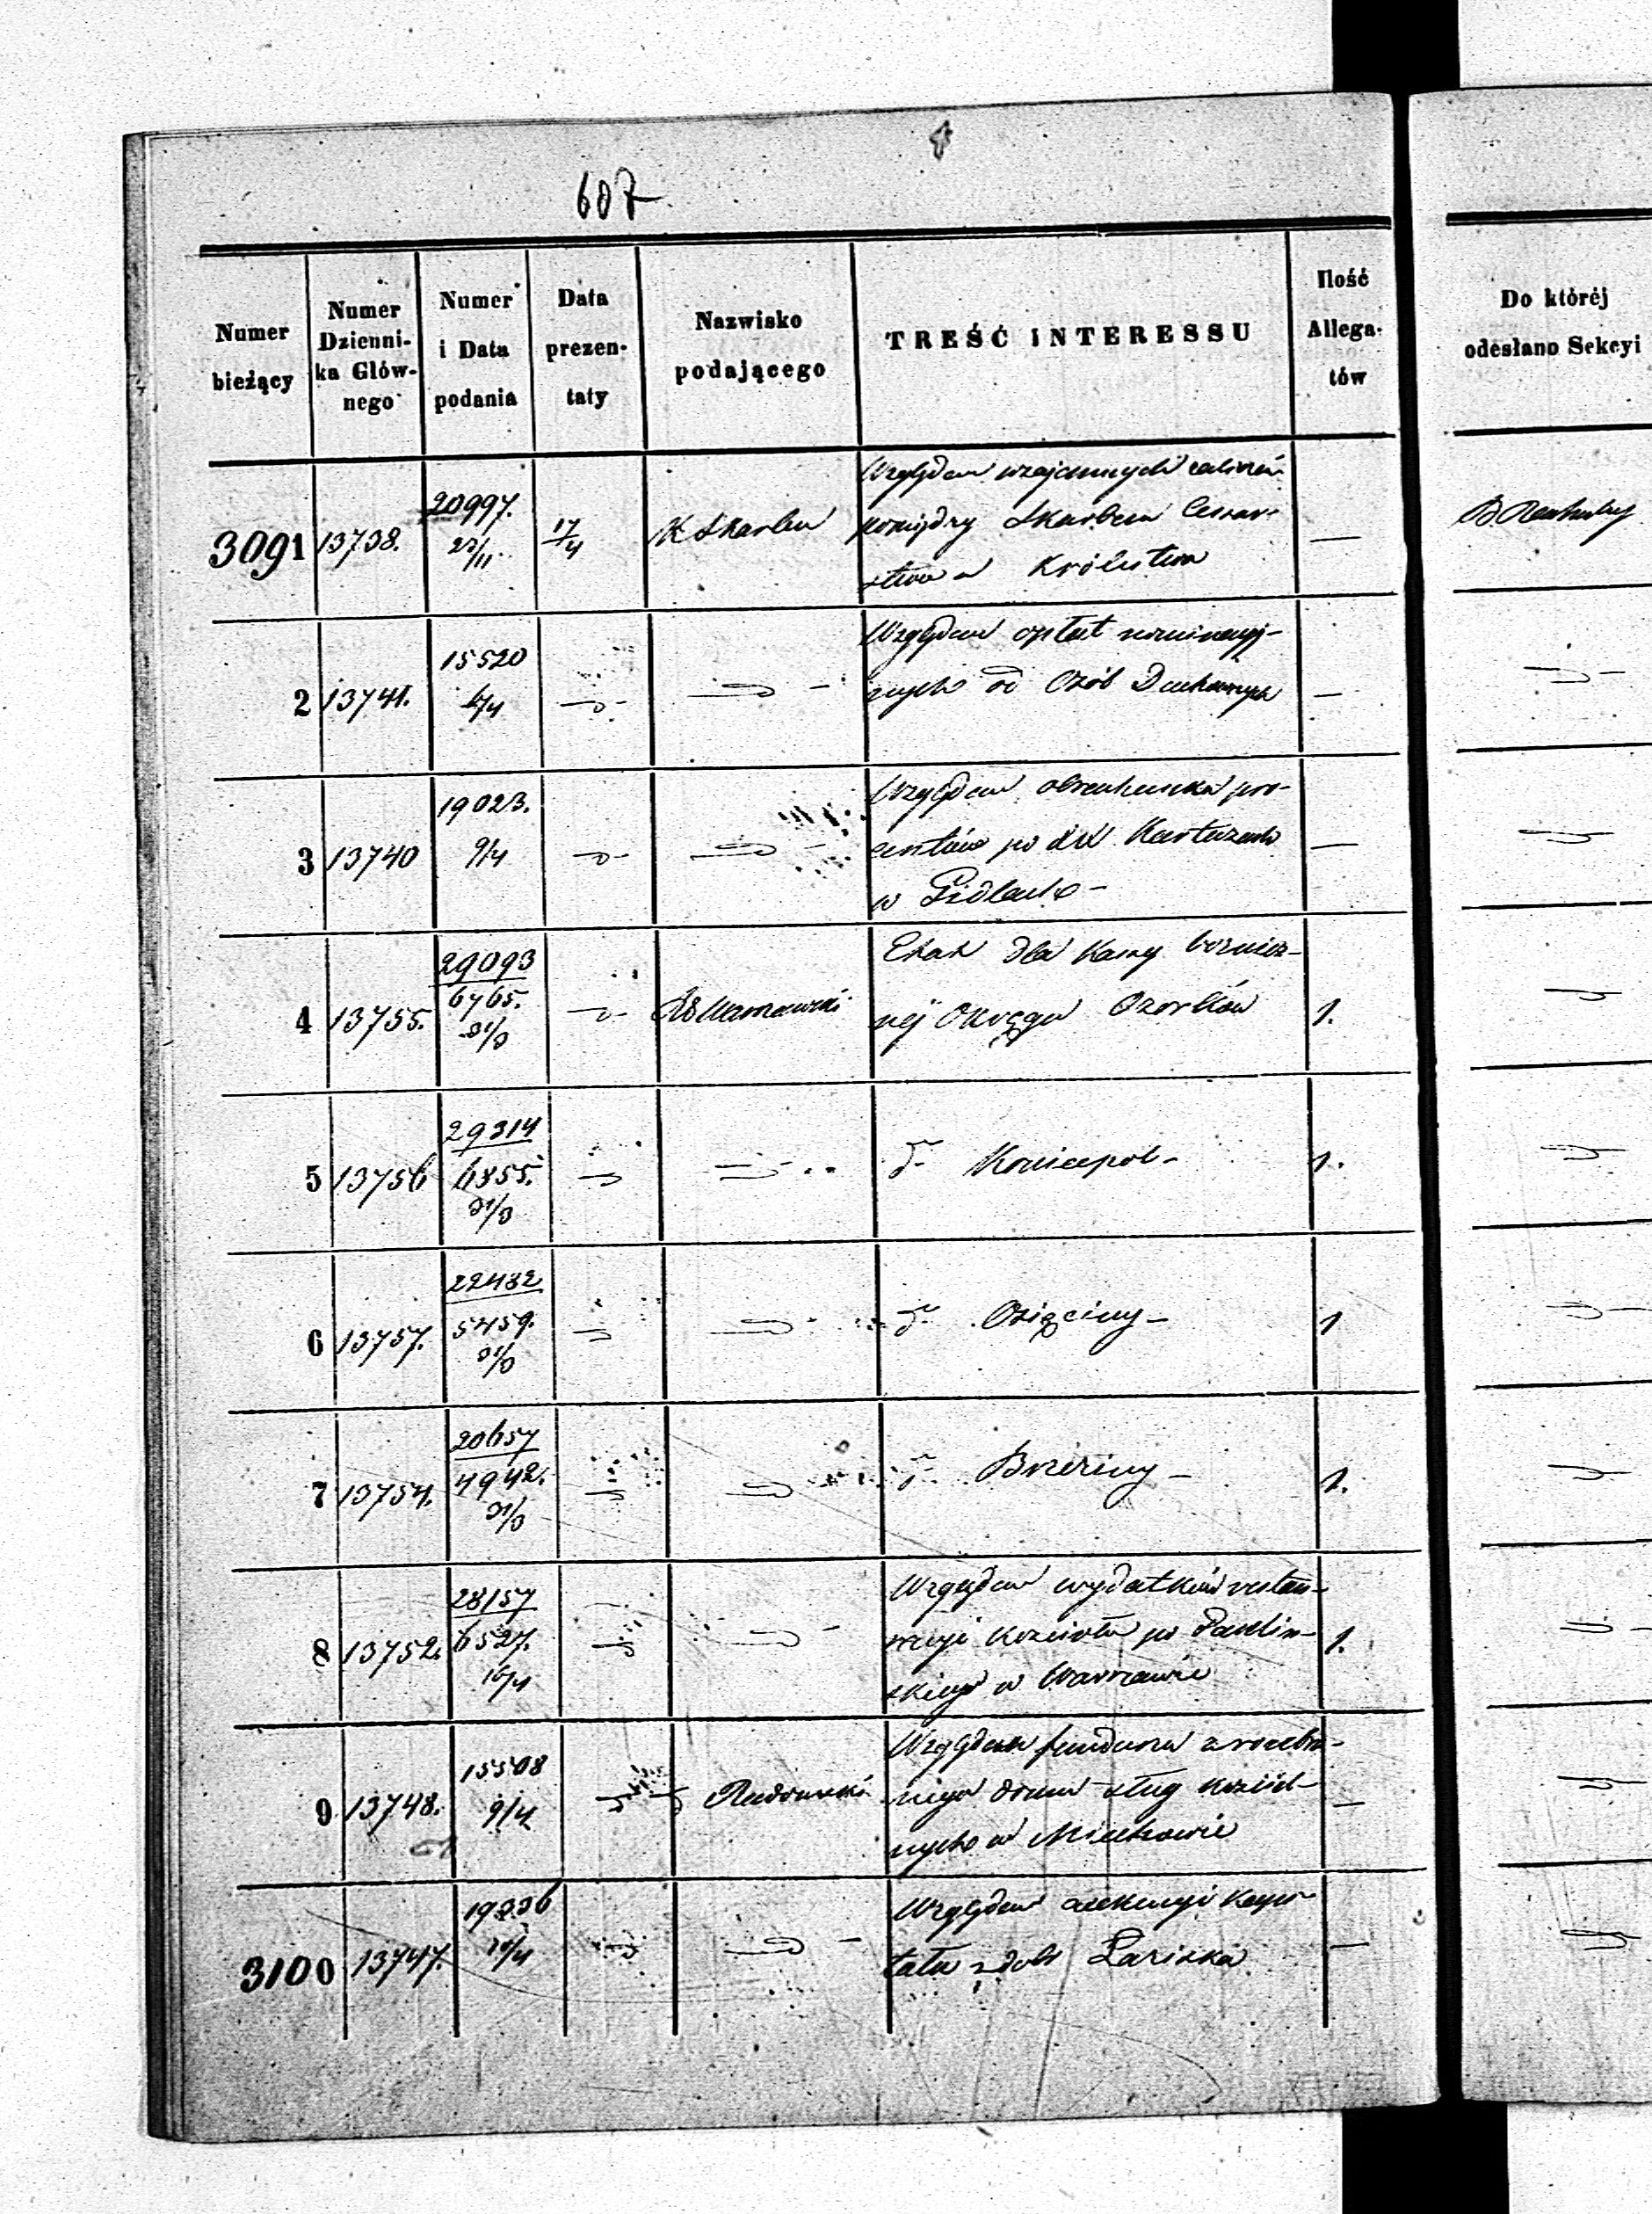 607
Numer bieżący
Numer Dzienni-ka Głów-nego
Numer i Data podania
Data prezen-taty
Nazwisko podającego
TREŚĆ INTERESSU
Ilość Allega-tów
Do któréj odesłano Sekcyi
3091 13738. 20997. 17/4 K Skarbu
Względem wzajemnych zaliczeń
pomiędzy Skarbem Cesar-
stwa a Królestwa —
2 13741. 15520
Względem opłat nominacyj-
nych od Osób Duchownych —
3 13740 19023. 9/4
Względem obrachunku pro-
centów po XX Kartuzach —
w Gidlach -
4 13755. 29093 6765. 31/3
Etat dla Kasy bożnicz-
néj Okręgu Ozorków 1.
5 13756 29314 6855. 31/3
d° Koniecpol - 1.
6 13757. 22482 5459. 31/3
d° Osięciny - 1
7 13754. 20657 4942. 31/3
d° Brzeziny - 1.
8 13752. 28157 6527. 10/4
Względem wydatków restau-
racyi Kościoła po Paulin- 1.
skiego w Warszawie
9 13748. 15508 9/4 Radomski
Względem funduszu z rozebra-
nego domu sług kościel- —
nych w Miechowie
3100 13747. 10/4
Względem Kapi-
tału z dóbr —